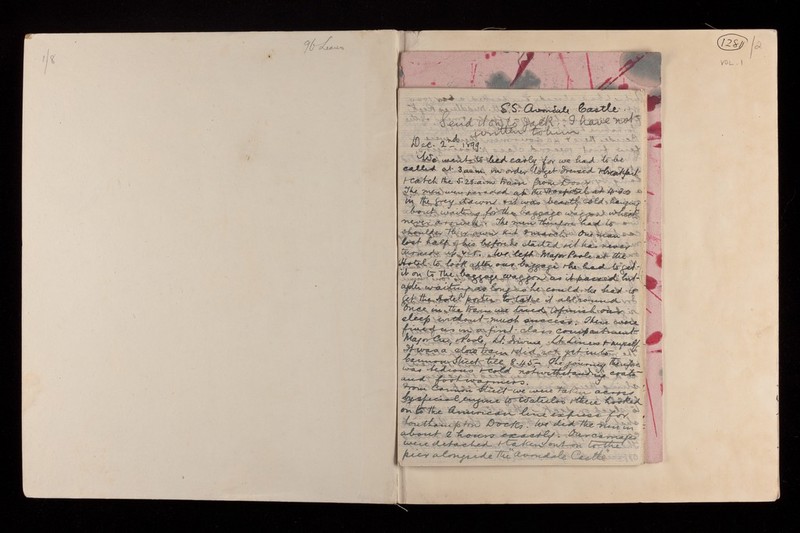 1/8
96 Leaves
1281/2
VOL. 1
S.S. Avondale Castle
Send it on to Jack. I have not
written to him
Dec. 2nd 1899.
We went to bed early for we had to be
called at 3 a.m. in order to get dressed & breakfast
& catch the 5.25 a.m. train from Dover.
The men were paraded at the Hospital at 4.30
in the grey dawn & it was beastly cold hanging
about waiting for the baggage waggon which
never arrived. The men therefore had to
shoulder their own kit & march. One man
lost half of his before he started & it has never
turned up yet. We left Major Poole at the
Hotel to look after our baggage & he had to get
it on to the baggage waggon as it passed but
after waiting as long as he could he had to
get the hotel porter to take it all round
Once in the train we tried to finish our
sleep without much success. There were
five of us in a first class compartment
Major Poole, Lt. Irvine, & myself.
It was a slow train & did not get into
Cannon Street till 8.45 – The journey therefore
was tedious & cold notwithstanding coats
and foot warmers.
From Cannon Street we were taken across
by special engine to Waterloo & there hooked
on to the American line express for
Southampton Docks. We did the run in
about 2 hours exactly. Our carriages
were detached & taken out on to the
pier alongside the "Avondale Castle"